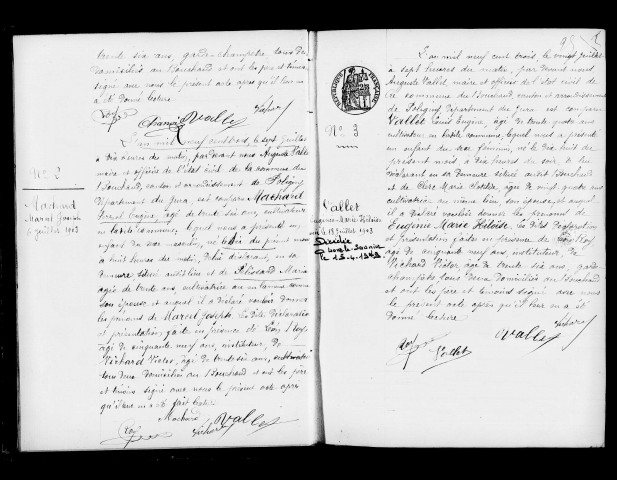 trente six ans, garde champêtre, tous deux
domiciliés au Bouchaud et ont les père et témoins
signé avec nous le présent acte après qu'il leur en
a été donné lecture.
Vallet
N° 2
Machard
Marcel Joseph
6 juillet 1903
L'an mil neuf cent trois, le sept juillet
à dix heures du matin, par devant nous Auguste Vallet
maire et officier de l'état civil de la commune du
Bouchaud, canton et arrondissement de Poligny
Département du Jura, est comparu Machard
Eugène, âgé de trente six ans, cultivateur
en cette commune, lequel nous a présenté un
enfant du sexe masculin, né le six du présent mois
à huit heures du matin, de lui déclarant, en sa
demeure et de Maria
âgée de trente ans, cultivatrice
son épouse, et auquel il a déclaré vouloir donner
les prénoms de Marcel Joseph. Les dites déclaration
et présentation faites en présence de Léon Roy
âgé de cinquante neuf ans, instituteur, de
Victor, âgé de trente six ans,
tous deux domiciliés au Bouchaud et ont les père
et témoins signé avec nous le présent acte après
qu'il leur en a été fait lecture.
Machard
Vallet
RÉPUBLIQUE FRANÇAISE
N° 3
Vallet
Eugénie Marie Héloïse
née le 18 juillet 1903
Décédée
le 15-4-1949
L'an mil neuf cent trois, le vingt juillet
à sept heures du matin, par devant nous
Auguste Vallet, maire et officier de l'état civil de
la commune du Bouchaud, canton et arrondissement
de Poligny, Département du Jura, est comparu
Vallet Louis Eugène, âgé de trente quatre ans
cultivateur en cette commune, lequel nous a présenté
un enfant du sexe féminin, né le dix huit du
présent mois à dix heures du soir, de lui
déclarant en sa demeure située audit Bouchaud
et de Marie âgée de vingt quatre ans
cultivatrice au même lieu, son épouse, et auquel
il a déclaré vouloir donner les prénoms de
Eugénie Marie Héloïse. Les dites déclaration
et présentation faites en présence de Léon Roy
âgé de cinquante neuf ans, instituteur, de
Victor âgé de trente six ans, garde
champêtre tous deux domiciliés au Bouchaud
et ont les père et témoins signé avec nous
le présent acte après qu'il leur en a été
donné lecture.
Vallet
Vallet